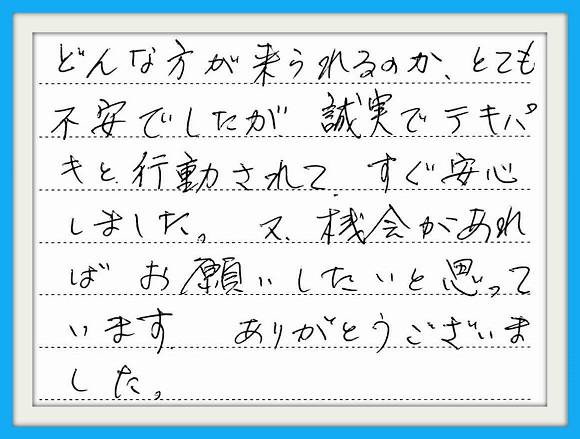 どんな方が来られるのか、とても
不安でしたが 誠実でテキパ
キと行動されて、すぐ安心
しました。 又、機会があれ
ば お願いしたいと思って
います。 ありがとうございま
した。